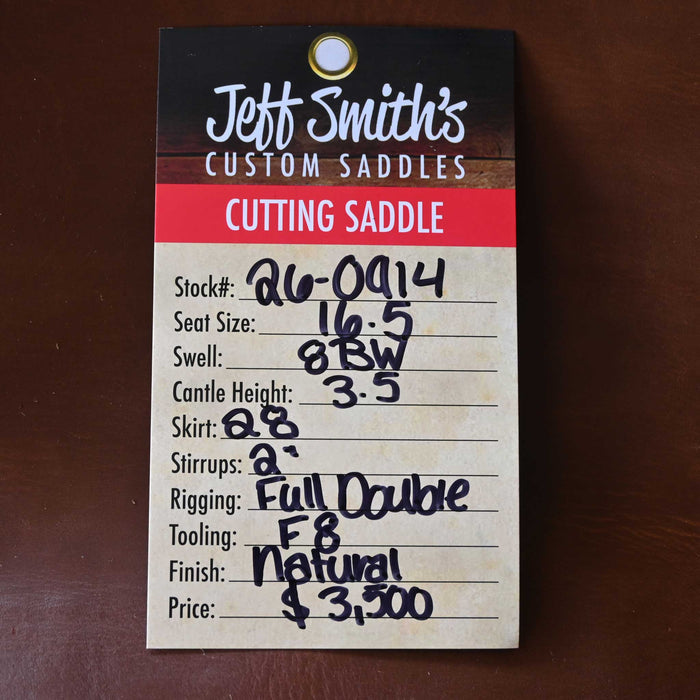 Jeff Smith's
CUSTOM SADDLES
CUTTING SADDLE
Stock#: 26-0914
Seat Size: 16.5
Swell: 8BW
Cantle Height: 3.5
Skirt: 28
Stirrups: 2"
Rigging: Full Double
Tooling: F8
Finish: Natural
Price: $3,500